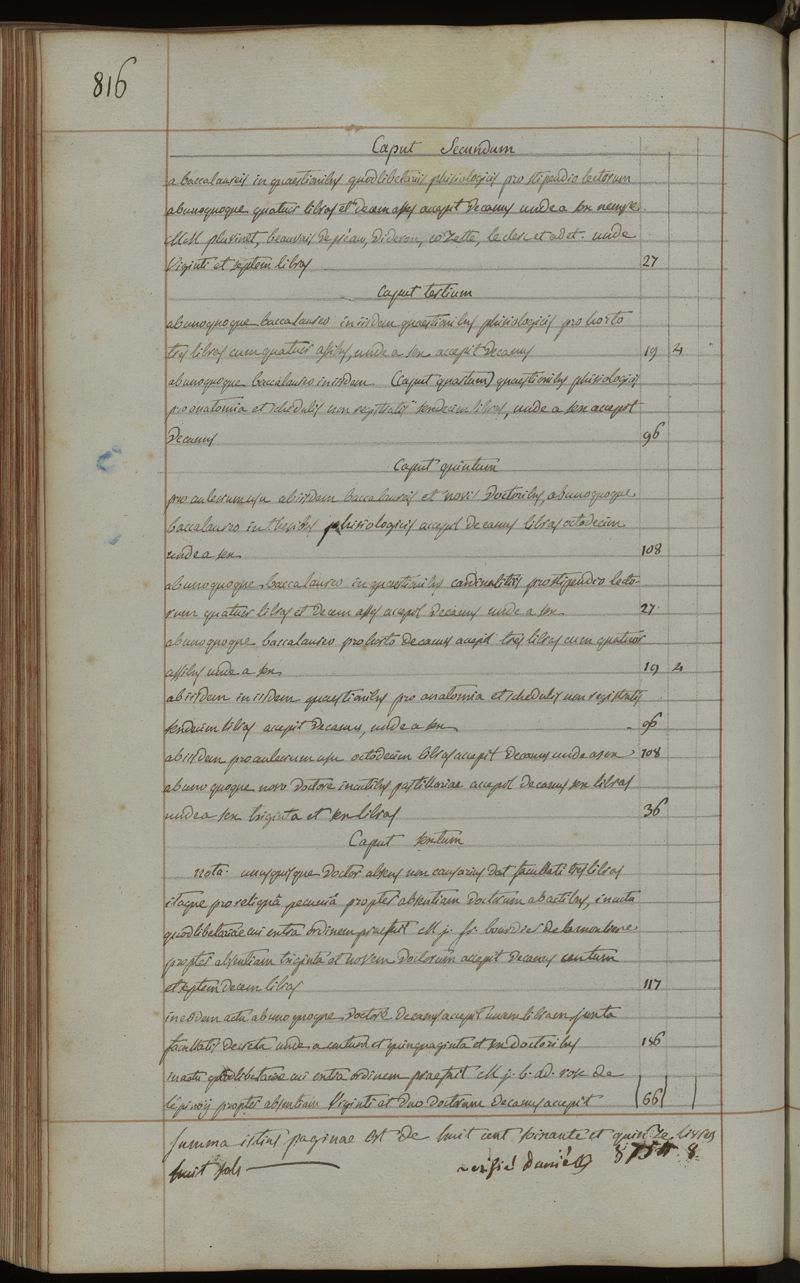 816
Caput Secundum
a baccalaureis in quaestionibus quodlibetariis phisiologicis pro stipendio lectorum
ab unoquoque quatuor libras et decem asses accepit Decanus unde a sex nempe
MM pluvinet, beauvais de préau, Dideron, cozette, le clerc et adet. unde
Viginti et septem libras 27
Caput tertium
ab unoquoque baccalaureo in iisdem quaestionibus phisiologicis pro horto
tres libras cum quatuor assibus, unde a sex accepit Decanus 19 4
ab unoquoque baccalaureo in iisdem (Caput quartum) quaestionibus phisiologicis
pro anatomia et schedulis non registratis sexdecim libras, unde a sex accepit
Decanus 96
Caput quintum
pro aulaeorum usu ab iisdem baccalaureis et novis Doctoribus, ab unoquoque
baccalaureo in thesibus phisiologicis accepit Decanus libras octodecim
unde a sex 108
ab unoquoque baccalaureo in quaestionibus cardinalitiis pro stipendio lecto-
rum quatuor libras et decem asses accepit Decanus unde a sex 27.
ab unoquoque baccalaureo pro horto Decanus accepit tres libras cum quatuor
assibus unde a sex 19 4
ab iisdem in iisdem quaestionibus pro anatomia et schedulis non registratis
sexdecim libras accepit Decanus, unde a sex 96
ab iisdem pro aulaeorum usu octodecim libras accepit Decanus unde a sex 108
ab uno quoque novo Doctore in actibus pastillariae accepit Decanus sex libras
unde a sex triginta et sex libras 36
Caput sextum
nota. unusquisque Doctor absens non causarius dat facultati tres libras
itaque pro reliquâ pecuniâ propter absentiam doctorum ab actibus, in actu
quodlibetariae cui extra ordinem praefuit M j. fr. bourdier de la moulière
propter absentiam triginta et novem Doctorum accepit Decanus centum
et septem decem libras 117
in eodem actu ab uno quoque Doctore Decanus accepit unam libram juxta
facultatis Decreta unde a centum et quinquaginta et sex Doctoribus 156
in actu quodlibetariae cui extra ordinem praefuit M j. b. ad. rose de
lépinoy propter absentiam Viginti et duo doctorum Decanus accepit 66
Summa istius paginae est de huit cent soixante et quinze livres
huit sols vérifié 875tt 8